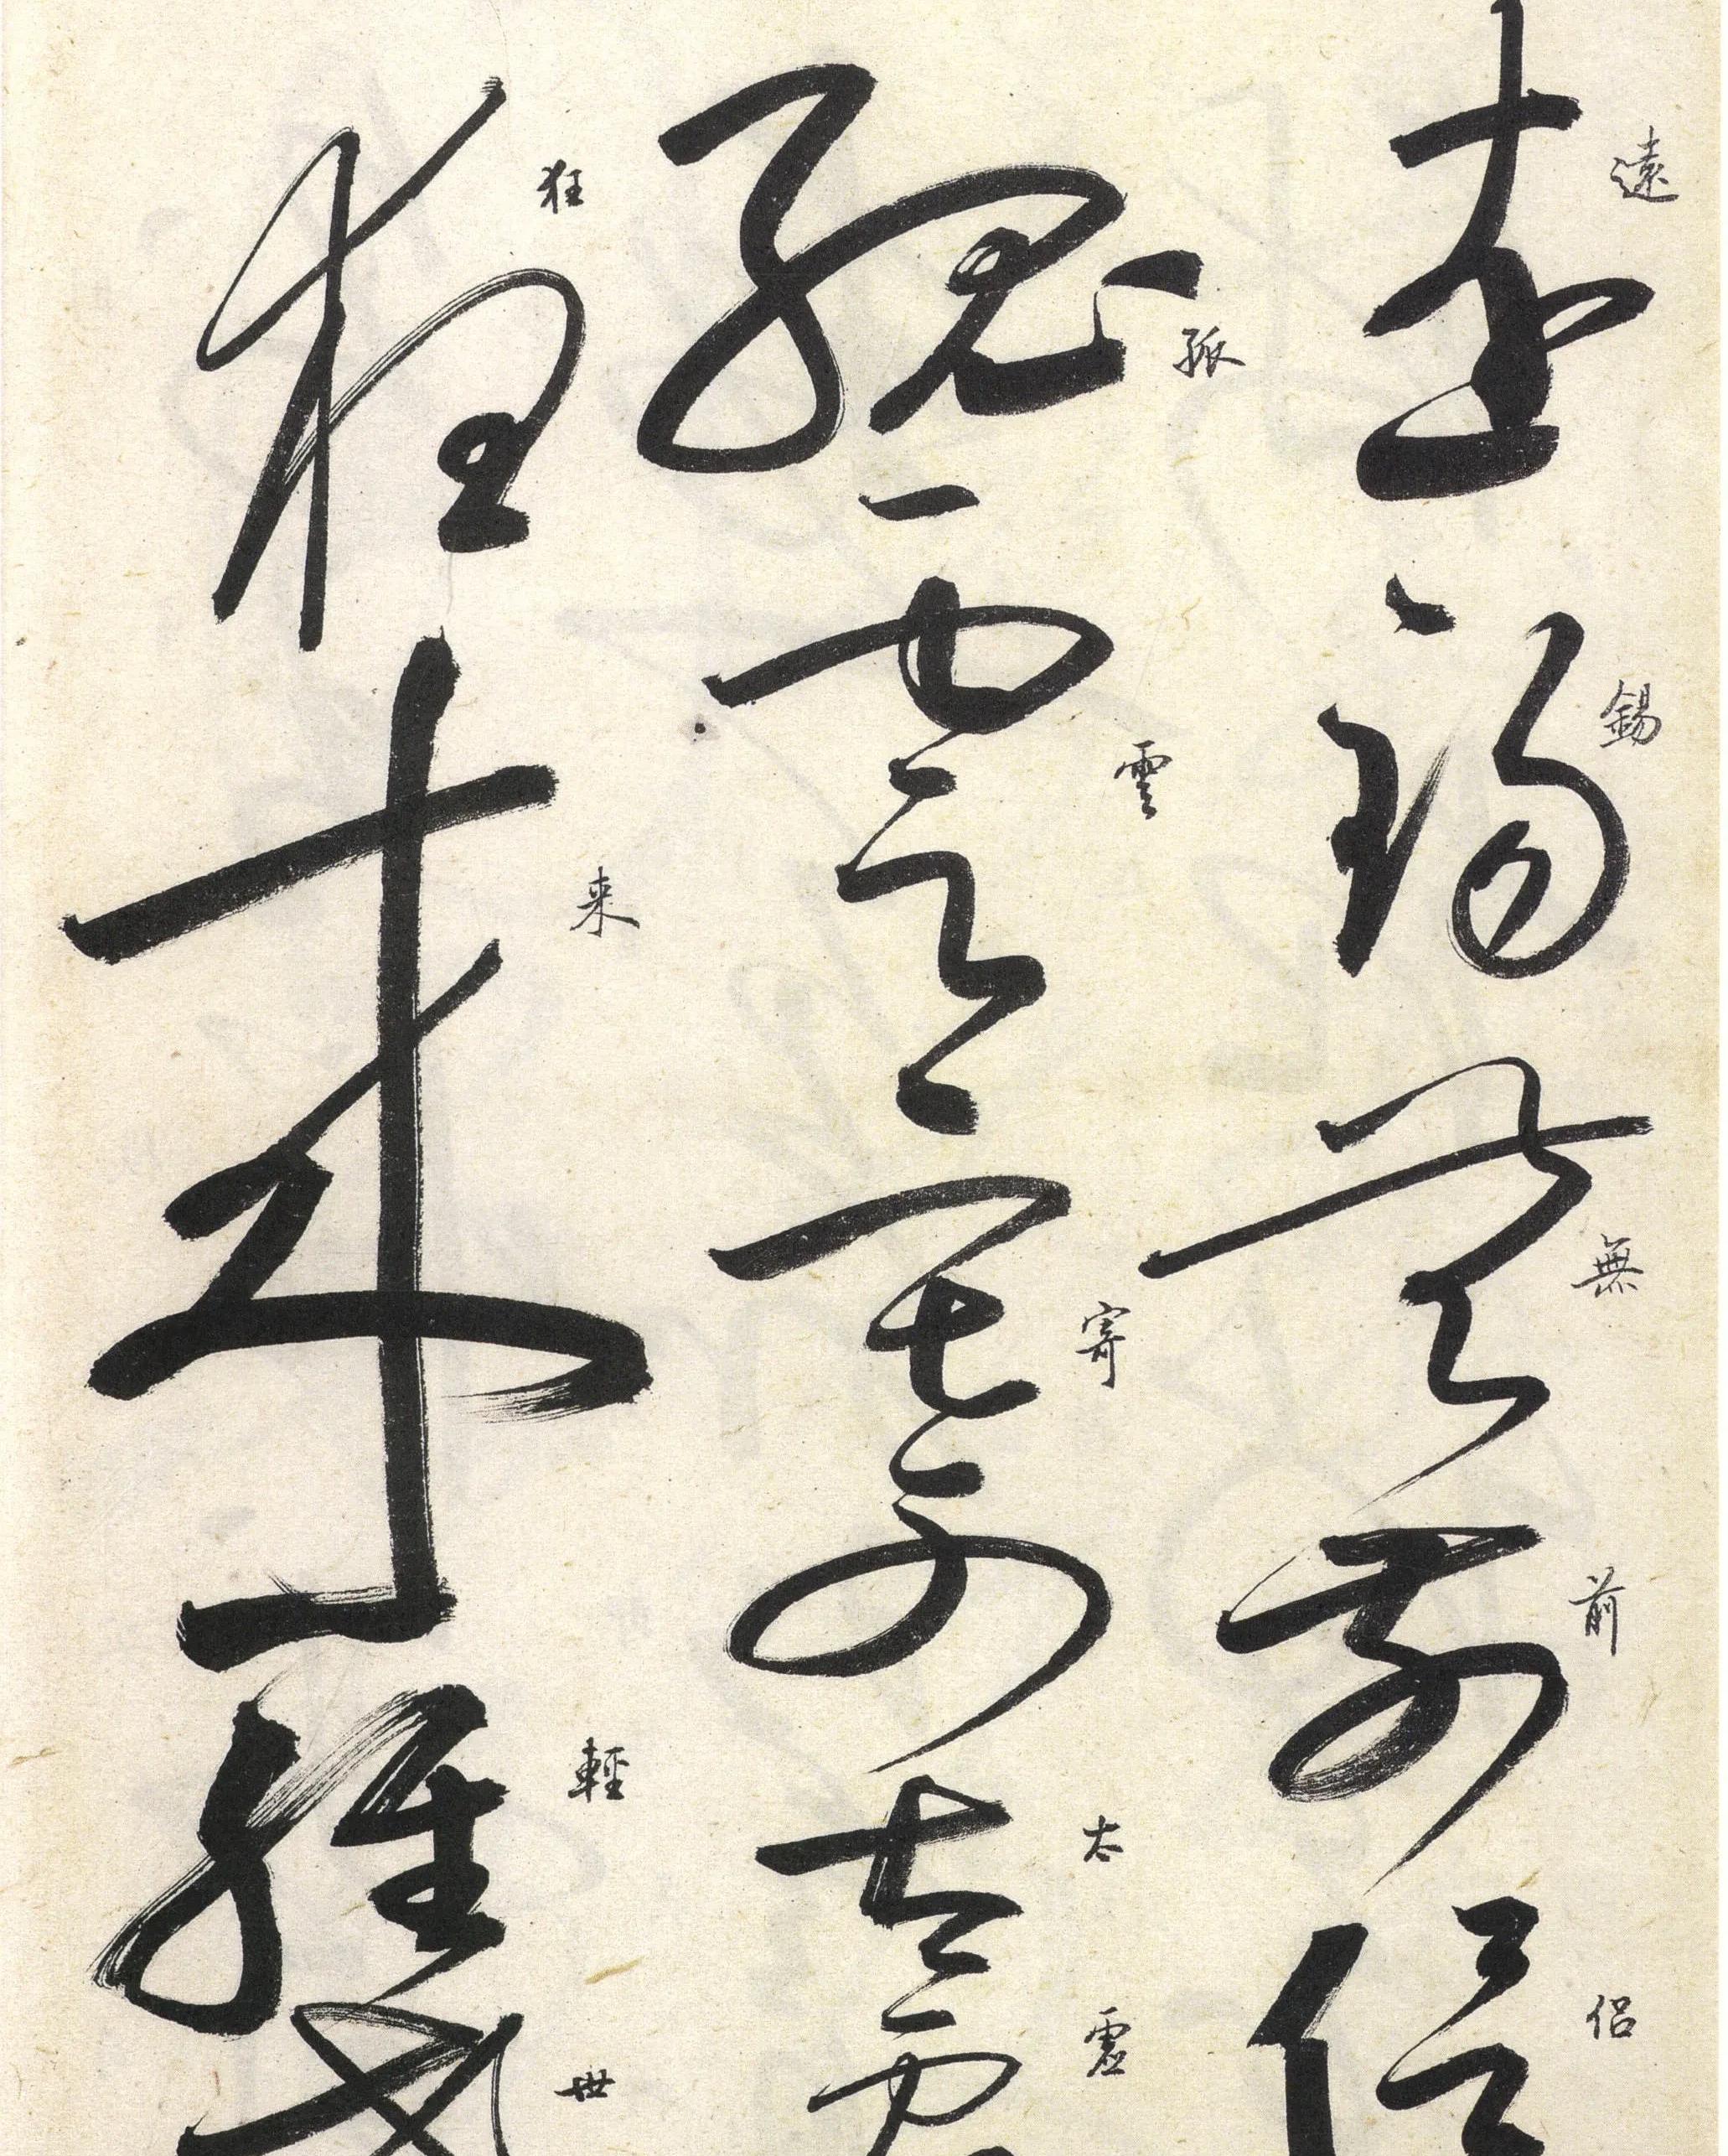 遠錫無前侶
孤雲寄太虛
狂来輕世